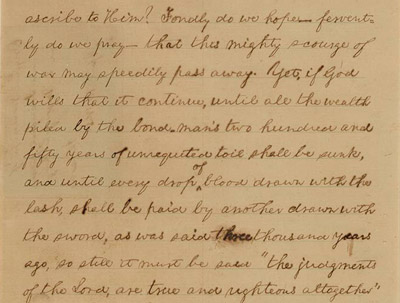 ascribe to Him? Fondly do we hope— fervent-
ly do we pray— that this mighty scourge of
war may speedily pass away. Yet, if God
wills that it continue, until all the wealth
piled by the bond-man's two hundred and
fifty years of unrequited toil shall be sunk,
and until every drop of blood drawn with the
lash, shall be paid by another drawn with
the sword, as was said three thousand years
ago, so still it must be said "the judgments
of the Lord, are true and righteous altogether"